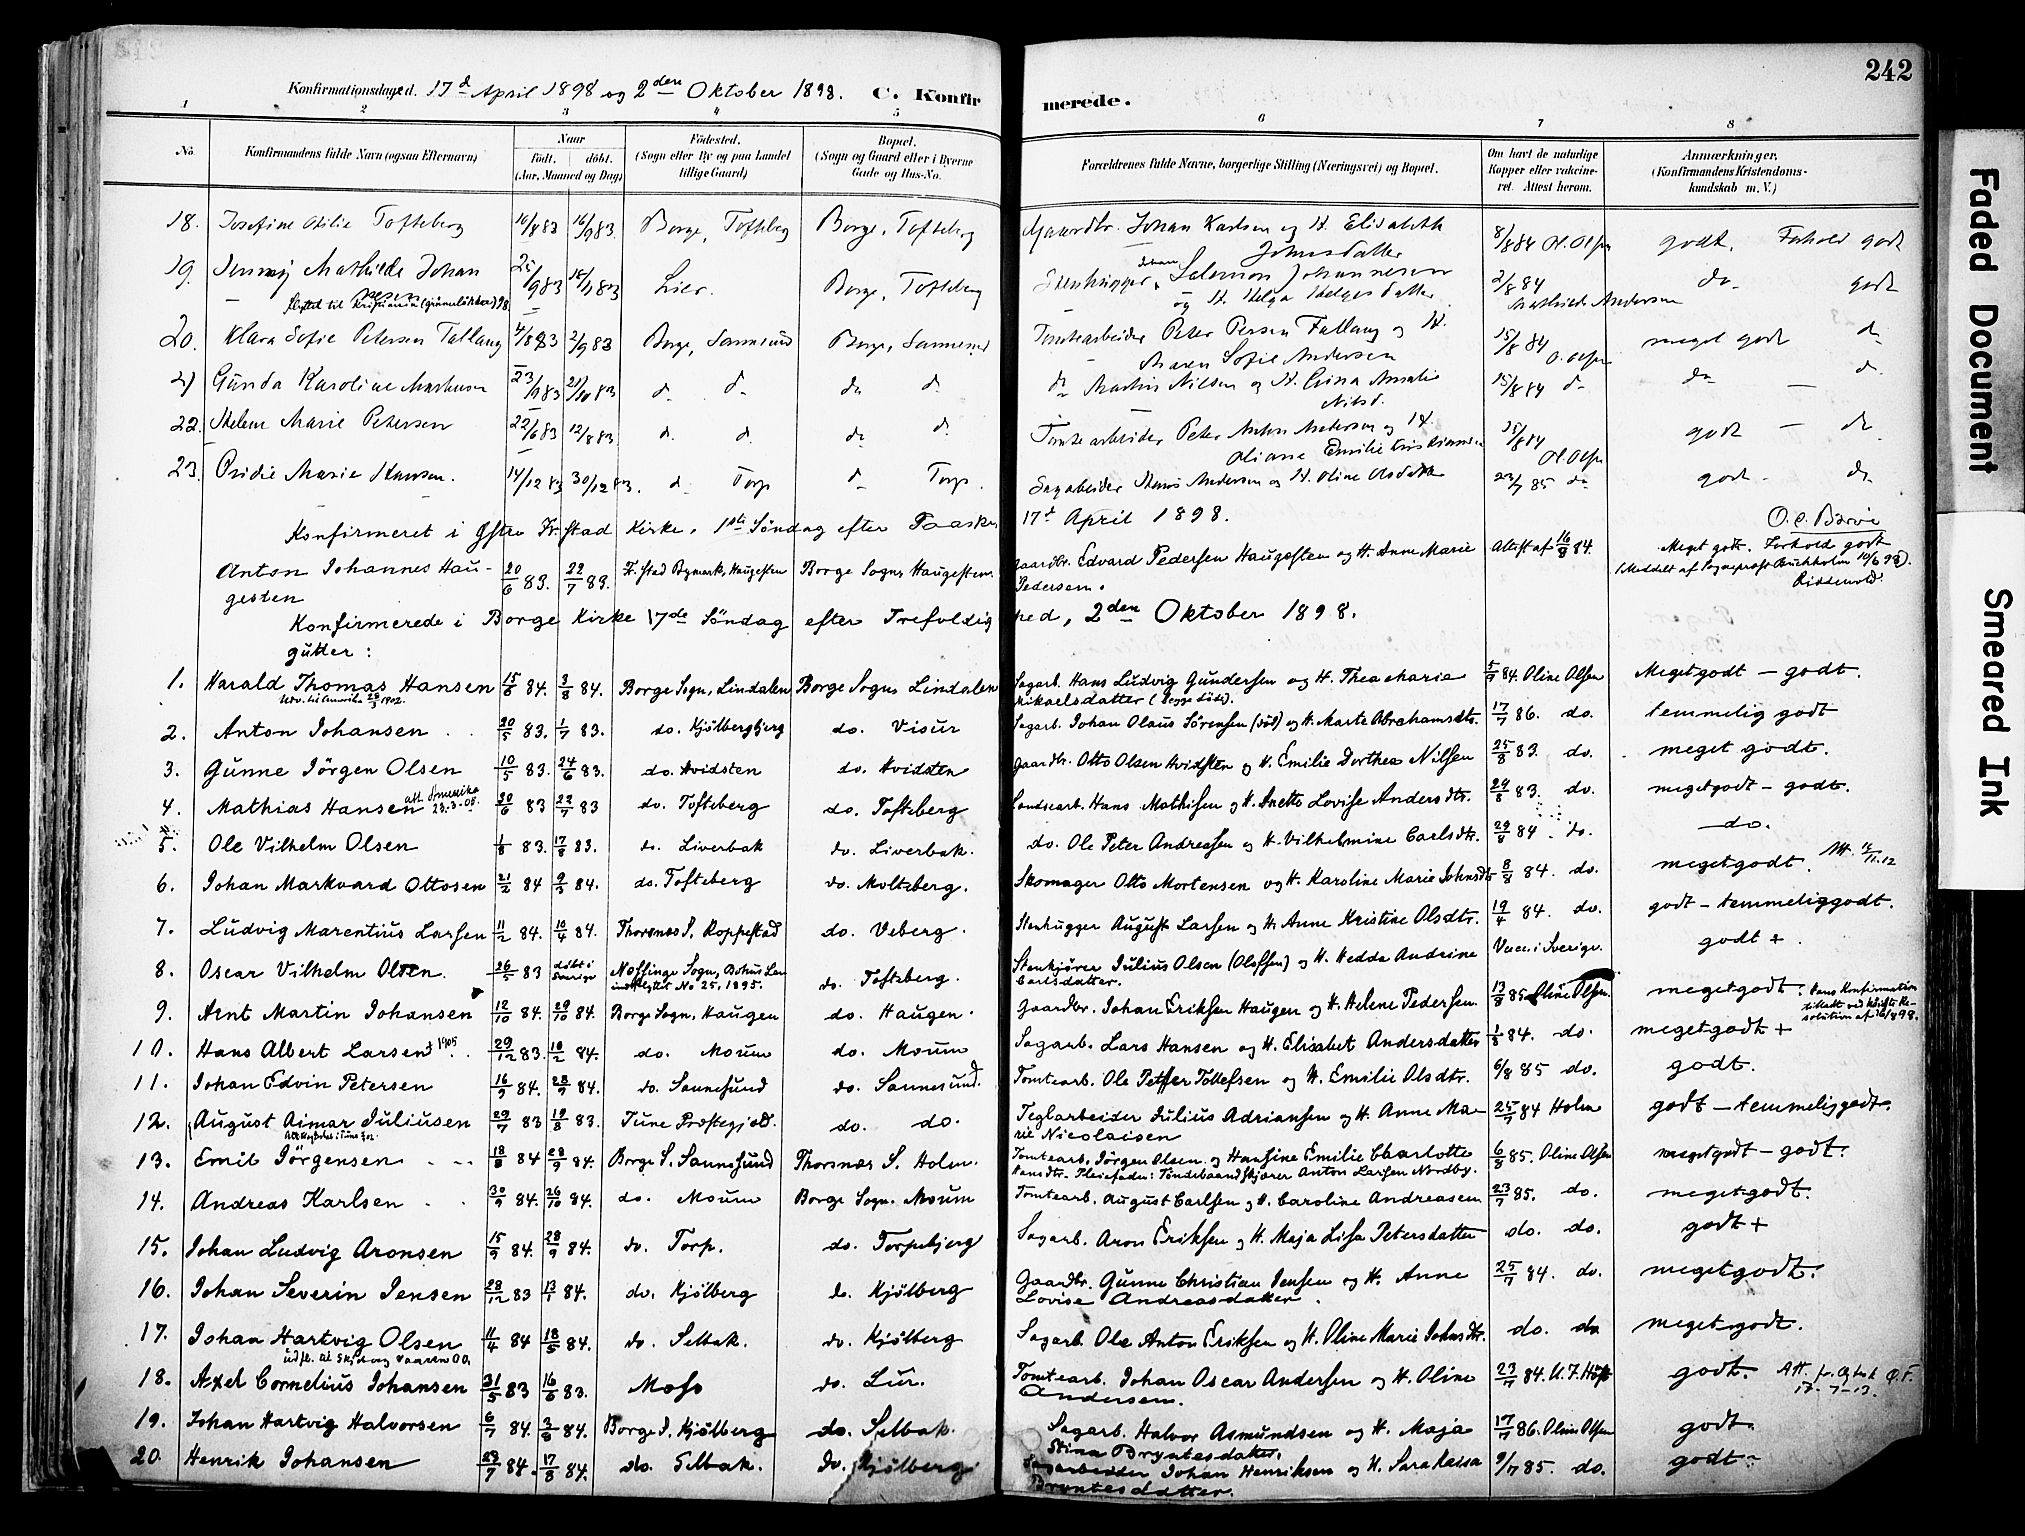 242
Konfirmationsdage d. 17d April 1898 og 2den Oktober 1898. C. Konfirmerede.
1 2 3 4 5 6 7 8
No. Konfirmandens fulde Navn (ogsaa Efternavn) Naar født. døbt. (Aar, Maaned og Dag) Fødested. (Sogn eller By og paa Landet tillige Gaard) Bopæl. (Sogn og Gaard eller i Byerne Gade og Hus-No. Forældrenes fulde Navne, borgerlige Stilling (Næringsvei) og Bopæl. Om havt de naturlige Kopper eller vaccineret. Attest herom. Anmærkninger, (Konfirmandens Kristendomskundskab m. V.)
18. Josefine Otilie Tofteberg 10/8 83 16/9 83. Borge, Tofteberg Borge, Tofteberg Gaardbr. Johan Karlsen og H. Elisabeth Johnsdatter 8/8 84 Ol. Olsen godt. Forhold godt
19. Jenny Mathilde Johansen 25/9 83 Lier. Borge, Tofteberg Stenhugger Salomon Johannesen og H. Helga Helgesdatter 2/8 84 Mathilde Andersen do godt
20. Klara Sofie Petersen Tallang 4/8 83 2/9 83 Borge, Sannesund Borge, Sannesund Tomtearbeider Peter Persen Tallang og H. Maren Sofie Andersen 15/8 84 O. Olsen meget godt do
21 Gunda Karoline Mathisen 23/9 83 21/10 83 do do do do do Martin Nilsen og H. Erina Amalie Nilsd. 15/8 84 do do — do
22. Helene Marie Petersen 22/6 83 12/8 83 do do do do Tomtearbeider Peter Anton Andersen og H. Oliane Emilie Kristiansen 15/8 84 Ol. Olsen godt — do
23. Ovidie Marie Hansen. 14/12 83 30/12 83. do Torp do Torp. Sagarbeider Hans Andersen og H. Oline Olsdatter 23/7 85 do godt — do
Konfirmeret i Østre Fr.stad Kirke, 1ste Søndag efter Paaske, 17d April 1898. O. C. Barvie
Anton Johannes Haugesten 20/6 83. 22/7 83. Fr.stad Bymark, Haugesten Borge Sogn, Haugesten. Gaardbr. Edvard Pedersen Haugesten og H. Anne Marie Pedersen. Attest af 16/8 84. Meget godt. Forhold godt (Meddelt af Sogneprest Buchholm 10/6 98). Riddervold.
Konfirmerede i Borge Kirke 17de Søndag efter Trefoldighed, 2den Oktober 1898.
gutter:
1. Harald Thomas Hansen 15/6 84. 3/8 84. Borge Sogn, Lindalen Borge Sogn, Lindalen Sagarb. Hans Ludvig Gundersen og H. Thea Marie Mikaelsdatter (begge døde). 5/9 84. Oline Olsen Meget godt — godt.
Udv. til Amerika 28/3 1902.
2. Anton Johansen 20/5 83. 1/7 83. do. Kjølbergbjerg do. Visur Sagarb. Johan Olaus Sørensen (død) og H. Marte Abrahamsdtr. 17/7 86. do. temmelig godt
3. Gunne Jörgen Olsen 10/5 83. 24/6 83. do. Hvidsten do. Hvidsten Gaardbr. Otto Olsen Hvidsten og H. Emilie Dorthea Nilsen 25/8 83. do. meget godt.
4. Mathias Hansen att. Amerika 23.3-05. 20/6 83 22/7 83 do. Tofteberg do. Tofteberg Landsarb. Hans Mathisen og H. Anette Lovise Andersdtr. 29/8 83. do. meget godt — godt.
5. Ole Vilhelm Olsen 1/8 83. 17/8 83. do. Liverbak do. Liverbak. do. Ole Peter Andreasen og H. Vilhelmine Carlsdtr. 29/8 84. do. do.
6. Johan Markvard Ottosen 21/2 84 9/3 84. do. Tofteberg do. Molteberg. Skomager Otto Mortensen og H. Karoline Marie Johnsdtr 8/8 84. do. meget godt. Att. 16/11.12
7. Ludvig Marentius Larsen 11/2 84. 10/4 84. Thorsnæs S. Koppestad do. Veberg. Stenhugger August Larsen og H. Anne Kristine Olsdtr. 19/4 84. do. godt — temmelig godt.
8. Oscar Vilhelm Olsen. 26/5 83 døbt i Sverige Næssinge Sogn, Bohus Len indflyttet No 25, 1895. do. Tofteberg. Stenkjører Julius Olsen (Olofsen) og H. Hedda Andrine Carlsdatter. Vacc. i Sverige. godt +.
9. Arnt Martin Johansen 12/10 84. 29/10 84. Borge Sogn, Haugen do. Haugen. Gaardbr. Johan Eriksen Haugen og H. Helene Pedersen. 13/8 85 Oline Olsen. meget godt. Hans Konfirmation tilladt ved Stifts Resolution af 898.
10. Hans Albert Larsen † 1905 29/12 83. 10/2 84. do. Moum do. Moum Sagarb. Lars Hansen og H. Elisabet Andersdatter 1/8 84. do. meget godt +
11. Johan Edvin Petersen 16/9 84. 28/9 84. do. Sannesund do. Sannesund. Tomtearb. Ole Petter Tollefsen og H. Emilie Olsdtr. 6/8 85 do. godt.
12. August Aimar Juliusen 29/7 83 19/8 83. Tune Præstegjeld. do. do. Teglarbeider Julius Adriansen og H. Anne Marie Nicolaisen 25/7 84 Holm godt — temmelig godt.
13. Emil Jörgensen 18/8 84 28/9 84. Borge S. Sannesund Thorsnæs S. Holm. Tomtearb. Jörgen Olsen og Hansine Emilie Charlotte Hansdtr. Pleiefader: Tøndebaandskjører Anton Larsen Nordby. 6/8 85. Oline Olsen meget godt — godt.
14. Andreas Karlsen 30/9 84. 26/10 84. do. Moum Borge Sogn. Moum Tomtearb. August Carlsen og H. Caroline Andreasen 23/7 85. do. meget godt.
15. Johan Ludvig Aronsen 15/9 84. 28/9 84. do. Torp. do. Torpebjerg Sagarb. Aron Eriksen og H. Maja Lisa Petersdatter do. do. godt +
16. Johan Severin Jensen 28/12 83 13/1 84. do. Kjölberg do. Kjölberg Gaardbr. Gunne Christian Jensen og H. Anne Lovise Andreasdatter. 25/7 84. do. meget godt.
17. Johan Hartvig Olsen 11/4 84 18/5 84. do. Selbak. do. Kjölberg Sagarb. Ole Anton Eriksen og H. Oline Marie Johnsdtr. do. do meget godt.
18. Axel Cornelius Johansen 31/5 83 16/6 83. Moss do. Lur. Tomtearb. Johan Oscar Andersen og H. Oline Andersen. 23/7 84. godt. Att. Ø.F. 17-7-13.
19. Johan Hartvig Halvorsen 6/7 84. 3/8 84. Borge S. Kjölberg do. Selbak. Sagarb. Halvor Asmundsen og H. Maja Stina Bryntesdatter. 17/7 86. Oline Olsen godt.
20. Henrik Johansen 29/7 84. 17/8 84. do. Selbak. do. Kjölberg Sagarbeider Johan Henriksen og H. Sara Kaisa Bryntesdatter. 9/7 85. do. godt
Faded Document
Smeared Ink